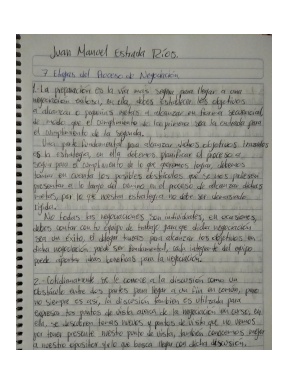 Juan Manuel Estrada Ríos.
7 Etapas del Proceso de Negociación
1. La preparación es la vía más segura para llegar a una
negociación exitosa, en ella, debes establecer los objetivos
a alcanzar o pequeñas metas a alcanzar en forma secuencial
de modo que el cumplimiento de la primera sea la entrada para
el cumplimiento de la segunda.
Una parte fundamental para alcanzar dichos objetivos trazados
es la estrategia, en ella debemos planificar el proceso a
seguir para el cumplimiento de lo que queremos lograr, debemos
tomar en cuenta los posibles obstáculos que se nos pueden
presentar a lo largo del camino en el proceso de alcanzar dichas
metas, por lo que nuestra estrategia no debe ser demasiado
rígida.
No todas las negociaciones son individuales, en ocasiones,
debes contar con tu equipo de trabajo para que dicha negociación
sea un éxito, el para alcanzar los objetivos en
dicha negociación puede ser fundamental, cada integrante del equipo
puede aportar ideas beneficas para la negociación.
2. Cotidianamente se le conoce a la discusión como un
obstáculo entre dos partes para llegar a un fin en común, pero
no siempre es así, la discusión también es utilizada para
expresar los puntos de vista acerca de la negociación en curso, en
ella, se descubren temas nuevos y puntos de vista que no vemos
por tener presente nuestro punto de vista, también conocemos mejor
a nuestro opositor y lo que busca lograr con dicha discusión.